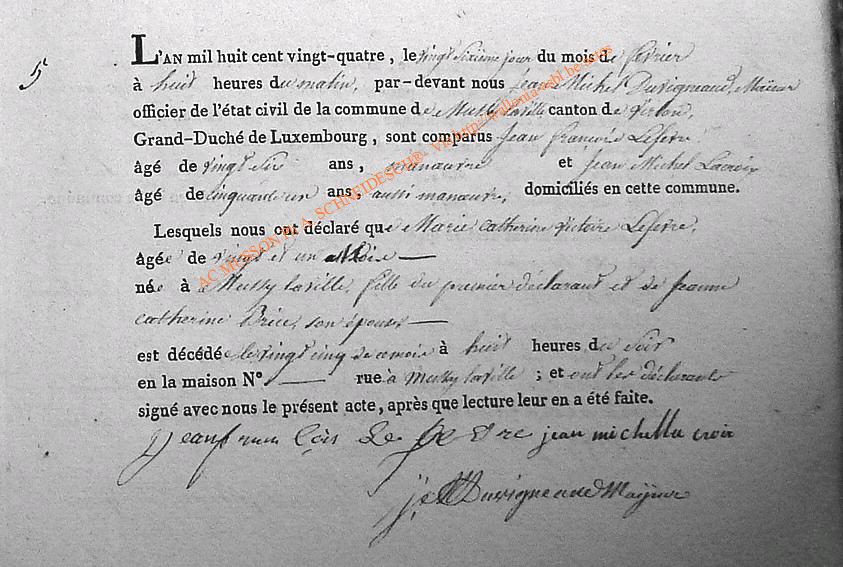 5
L'AN mil huit cent vingt-quatre, le vingt sixième jour du mois de fevrier
à huit heures du matin, par-devant nous Jean Michel Duvigneaud, Maïeur
officier de l'état civil de la commune de Mussy laville canton de virton,
Grand-Duché de Luxembourg, sont comparus Jean françois Lefevre
âgé de vingt six ans, manœuvre et Jean Michel Lacroix
âgé de cinquante un ans, aussi manœuvre, domiciliés en cette commune.
Lesquels nous ont déclaré que Marie Catherine victoire Lefevre,
âgée de vingt et un Mois
née à Mussy laville, fille du premier déclarant et de Jeanne
catherine Brice, son épouse
est décédée le vingt cinq de ce mois à huit heures du soir
en la maison N.° rue à Mussy laville ; et ont les déclarants
signé avec nous le présent acte, après que lecture leur en a été faite.
jean michel la croix
Duvigneaud Maÿeur
AC MUSSON A.A. SCHNEIDESCH